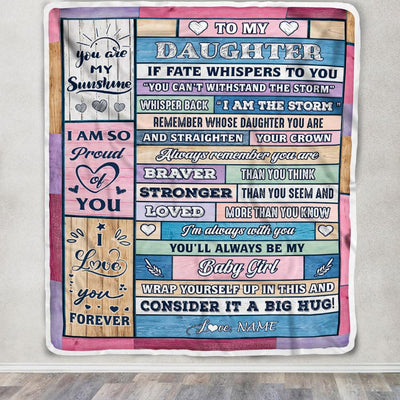 you are
MY
Sunshine
I AM SO
Proud
of
YOU
I
Love
you
FOREVER
TO MY
DAUGHTER
IF FATE WHISPERS TO YOU
"YOU CAN'T WITHSTAND THE STORM"
WHISPER BACK "I AM THE STORM"
REMEMBER WHOSE DAUGHTER YOU ARE
AND STRAIGHTEN YOUR CROWN
Always remember you are
BRAVER THAN YOU THINK
STRONGER THAN YOU SEEM AND
LOVED MORE THAN YOU KNOW
I'm always with you
YOU'LL ALWAYS BE MY
Baby Girl
WRAP YOURSELF UP IN THIS AND
CONSIDER IT A BIG HUG!
Love, NAME